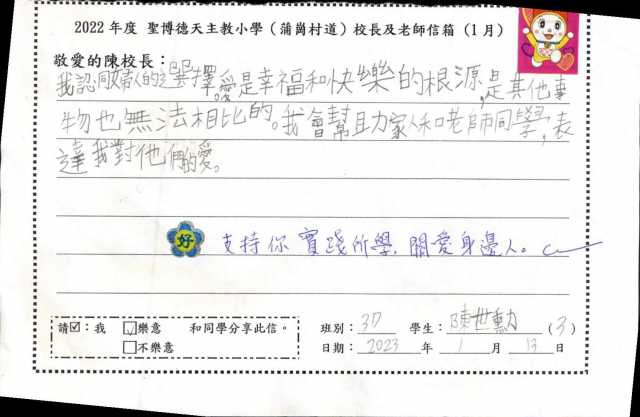 2022 年度 聖博德天主教小學（蒲崗村道）校長及老師信箱（1 月）
敬愛的陳校長：
我認同婦人的之選擇。愛是幸福和快樂的根源，是其他事
物也無法相比的。我會幫助家人和老師同學，表
達我對他們的愛。
好 支持你實踐所學，關愛身邊人。
請☑：我 ☑樂意 和同學分享此信。
□不樂意
班別：3D 學生：陳世勳（3）
日期：2023 年 1 月 13 日